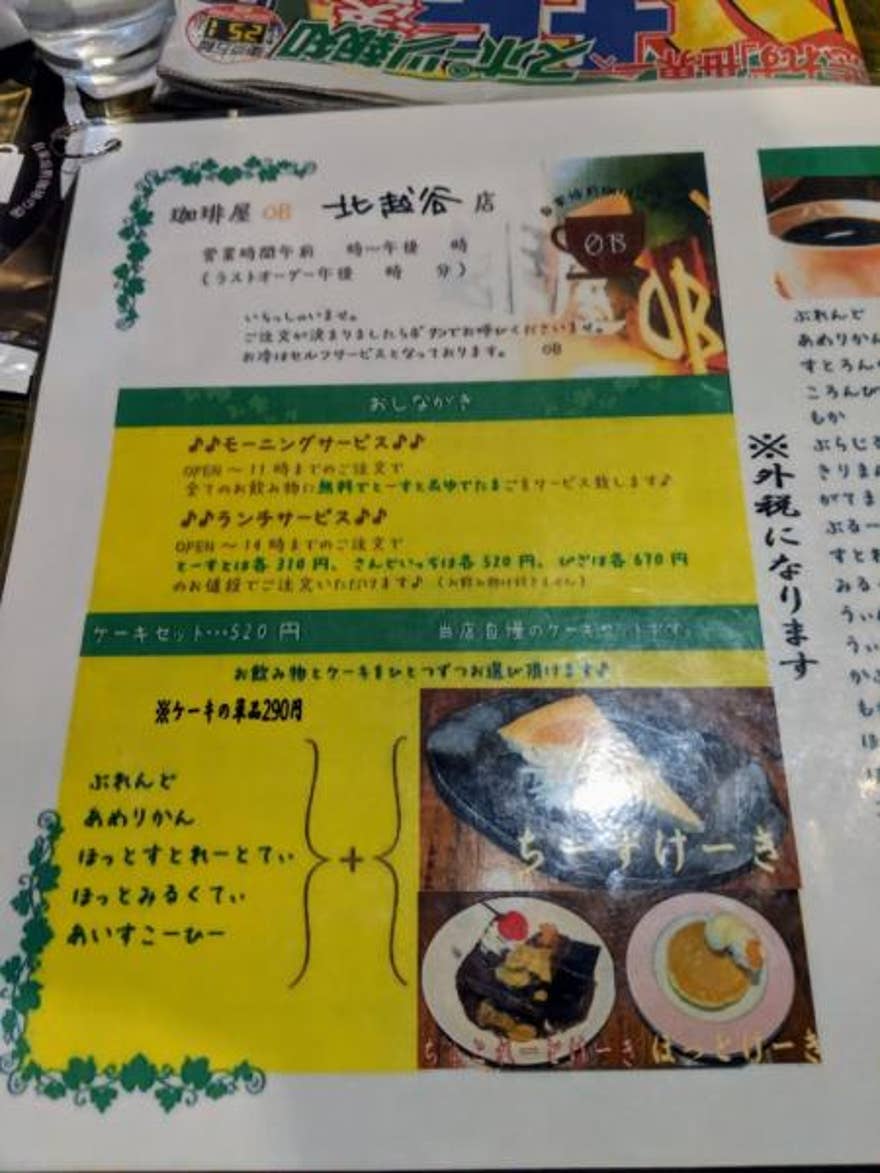 スポーツ報知
珈琲屋 OB 北越谷 店
営業時間午前　時〜午後　時
(ラストオーダー午後　時　分)
いらっしゃいませ。
ご注文が決まりましたらボタンでお呼びくださいませ。
お冷はセルフサービスとなっております。 OB
OB
OB
おしながき
♪♪モーニングサービス♪♪
OPEN 〜 11 時までのご注文で
全てのお飲み物に無料でとーすとゆでたまごをサービス致します♪
♪♪ランチサービス♪♪
OPEN 〜 14 時までのご注文で
とーすとは各 310 円、さんどいっちは各 520 円、ぴざは各 670 円
のお値段でご注文いただけます♪ (お飲み物は付きません)
ケーキセット…520 円
当店自慢のケーキセットです。
お飲み物とケーキをひとつずつお選び頂けます♪
※ケーキの単品290円
ぶれんど
あめりかん
ほっとすとれーとてぃ
ほっとみるくてぃ
あいすこーひー
+
ちーずけーき
ちょこれーとけーき
ほっとけーき
※外税になります
ぶれんど
あめりかん
すとろん
ころんび
もか
ぶらじ
きりま
がてま
ぶるー
すとれ
みる
うぃ